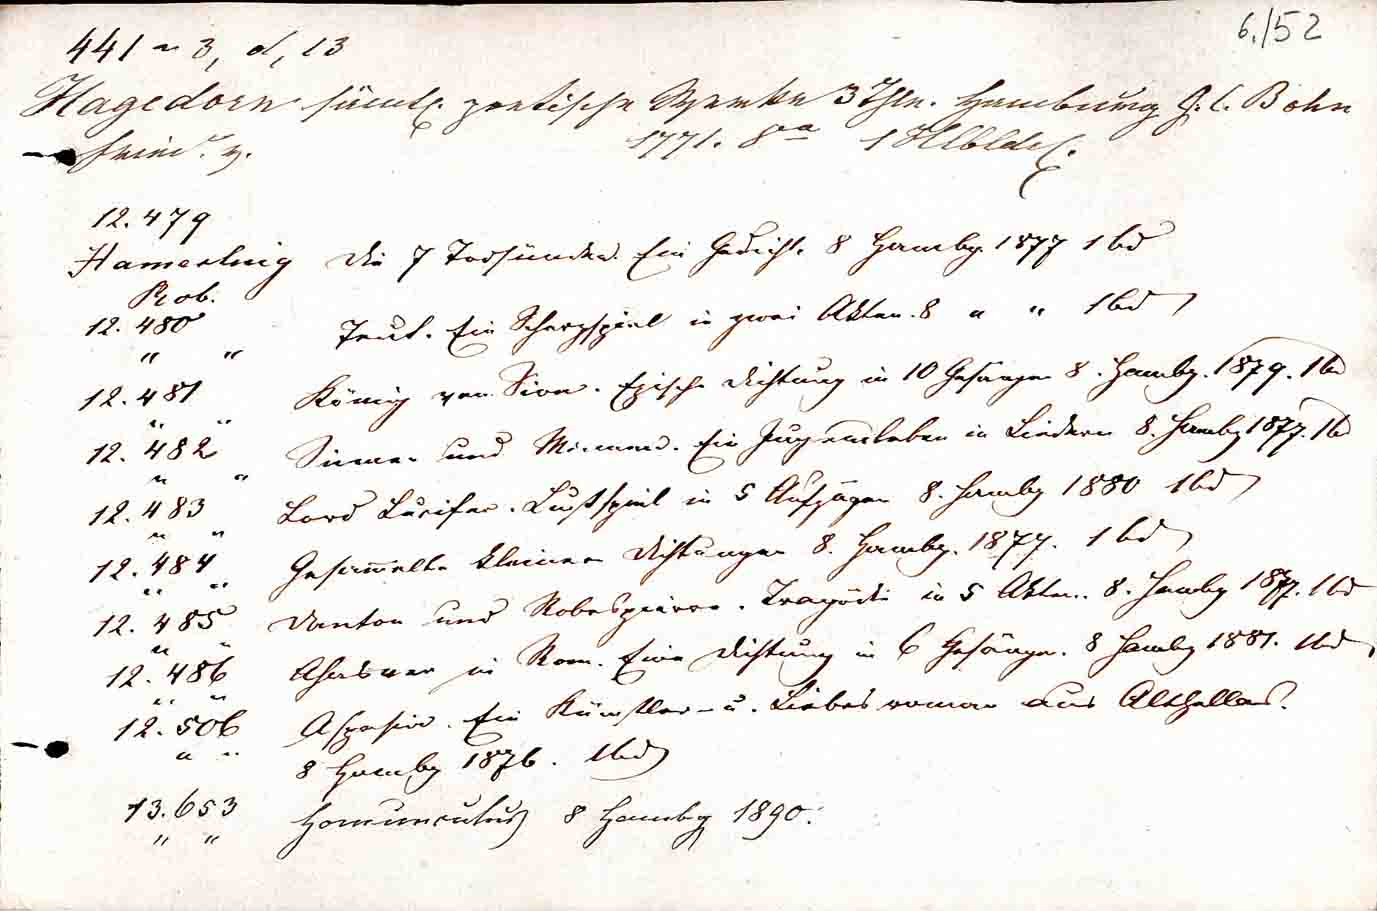 6./52
441 3, d, 13
Hagedorn sämtl. poetische Werke 3 Thle. Hamburg J. C. Bohn
Fried. v. 1771. 8va 1 Hlbldr.
12.479
Hamerling Die 7 Todsünden. Ein Gedicht. 8 Hambg. 1877 1 bd
Rob.
12.480 Teut. Ein Scherzspiel in zwei Akten. 8 " " 1 bd
" "
12.481 König von Sion. Epische Dichtung in 10 Gesängen 8. Hambg. 1879. 1 bd
" "
12.482 Sinnen und Minnen. Ein Jugendleben in Liedern 8. Hambg 1877. 1 bd
" "
12.483 Lord Lucifer. Lustspiel in 5 Aufzügen 8. Hambg 1880 1 bd
" "
12.484 Gesam̅elte kleinere Dichtungen 8. Hambg. 1879. 1 bd
" "
12.485 Danton und Robespierre. Tragödie in 5 Akten. 8. Hambg 1877. 1 bd
" "
12.486 Ahasver in Rom. Eine Dichtung in 6 Gesängen. 8 Hambg 1881. 1 bd
" "
12.506 Aspasia. Ein Künstler- u. Liebesroman aus Althellas.
" " 8 Hambg 1876. 1 bd
13.653 Homunculus 8 Hambg 1890.
" "